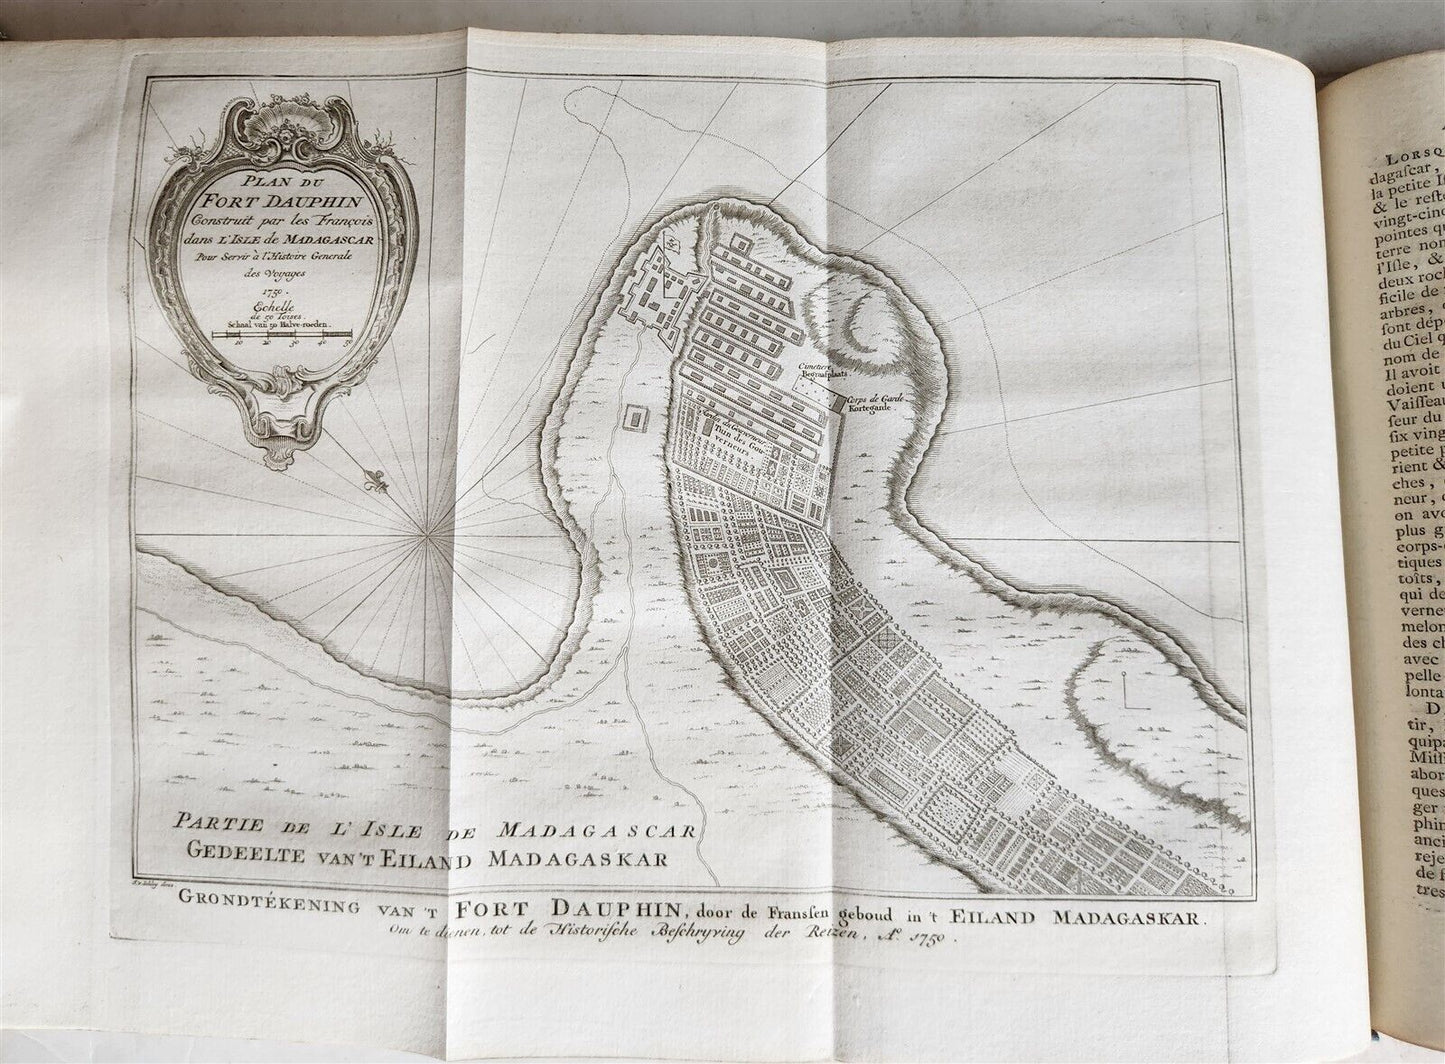 PLAN DU
FORT DAUPHIN
Construit par les François
dans L'ISLE de MADAGASCAR
Pour Servir à l'Histoire Generale
des Voyages
1750.
Echelle
de 50 Toises.
Schaal van 50 Halve-roeden.
10 20 30 40 50
Cimetiere
Begraafplaats.
Corps de Garde
Kortegarde.
Jardin du Gouverneur
Tuin des Gou-
verneurs.
PARTIE DE L'ISLE DE MADAGASCAR
GEDEELTE VAN'T EILAND MADAGASKAR
GRONDTÉKENING VAN 'T FORT DAUPHIN, door de Fransſen geboud in 't EILAND MADAGASKAR.
Om te dienen, tot de Hiſtoriſche Beſchryving der Reizen, Aº. 1750.
LORSQ
dagaſcar,
la petite I
& le reſt
vingt-cinq
pointes qu
terre nom
l'Iſle, &
deux roc
ficile de
arbres,
ſont dép
du Ciel q
nom de
Il avoit
doient
Vaiſſeau
ſeur du
ſix ving
petite p
rient &
ches,
neur,
on avo
plus g
corps-
tiques
toîts,
qui de
verne
melon
des ch
avec
pelle
lonta
D
tir,
quipa
Miſſ
abor
ques
ger
phin
anci
reje
de ſ
tres